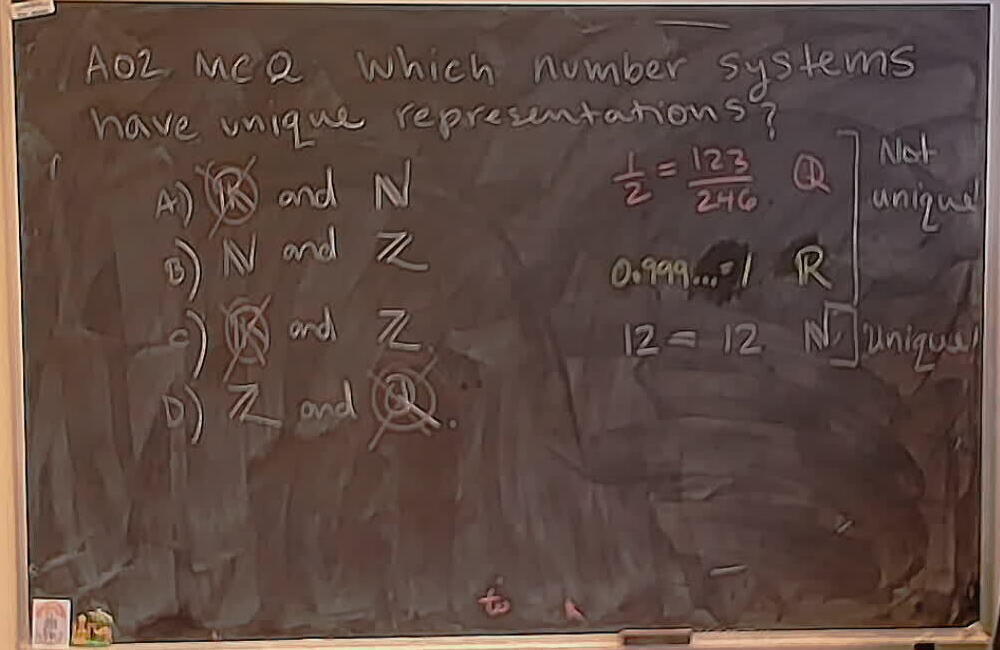 A02 MCQ Which number systems
have unique representations?
A) ℝ and ℕ
B) ℕ and ℤ
C) ℝ and ℤ.
D) ℤ and ℚ.
1/2 = 123/246 ℚ
0.999... = 1 ℝ
Not
unique
12 = 12 ℕ
Unique!